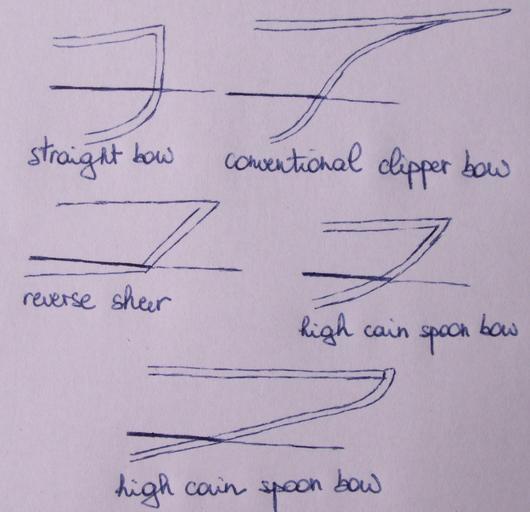 straight bow
conventional clipper bow
reverse sheer
high cain spoon bow
high cain spoon bow